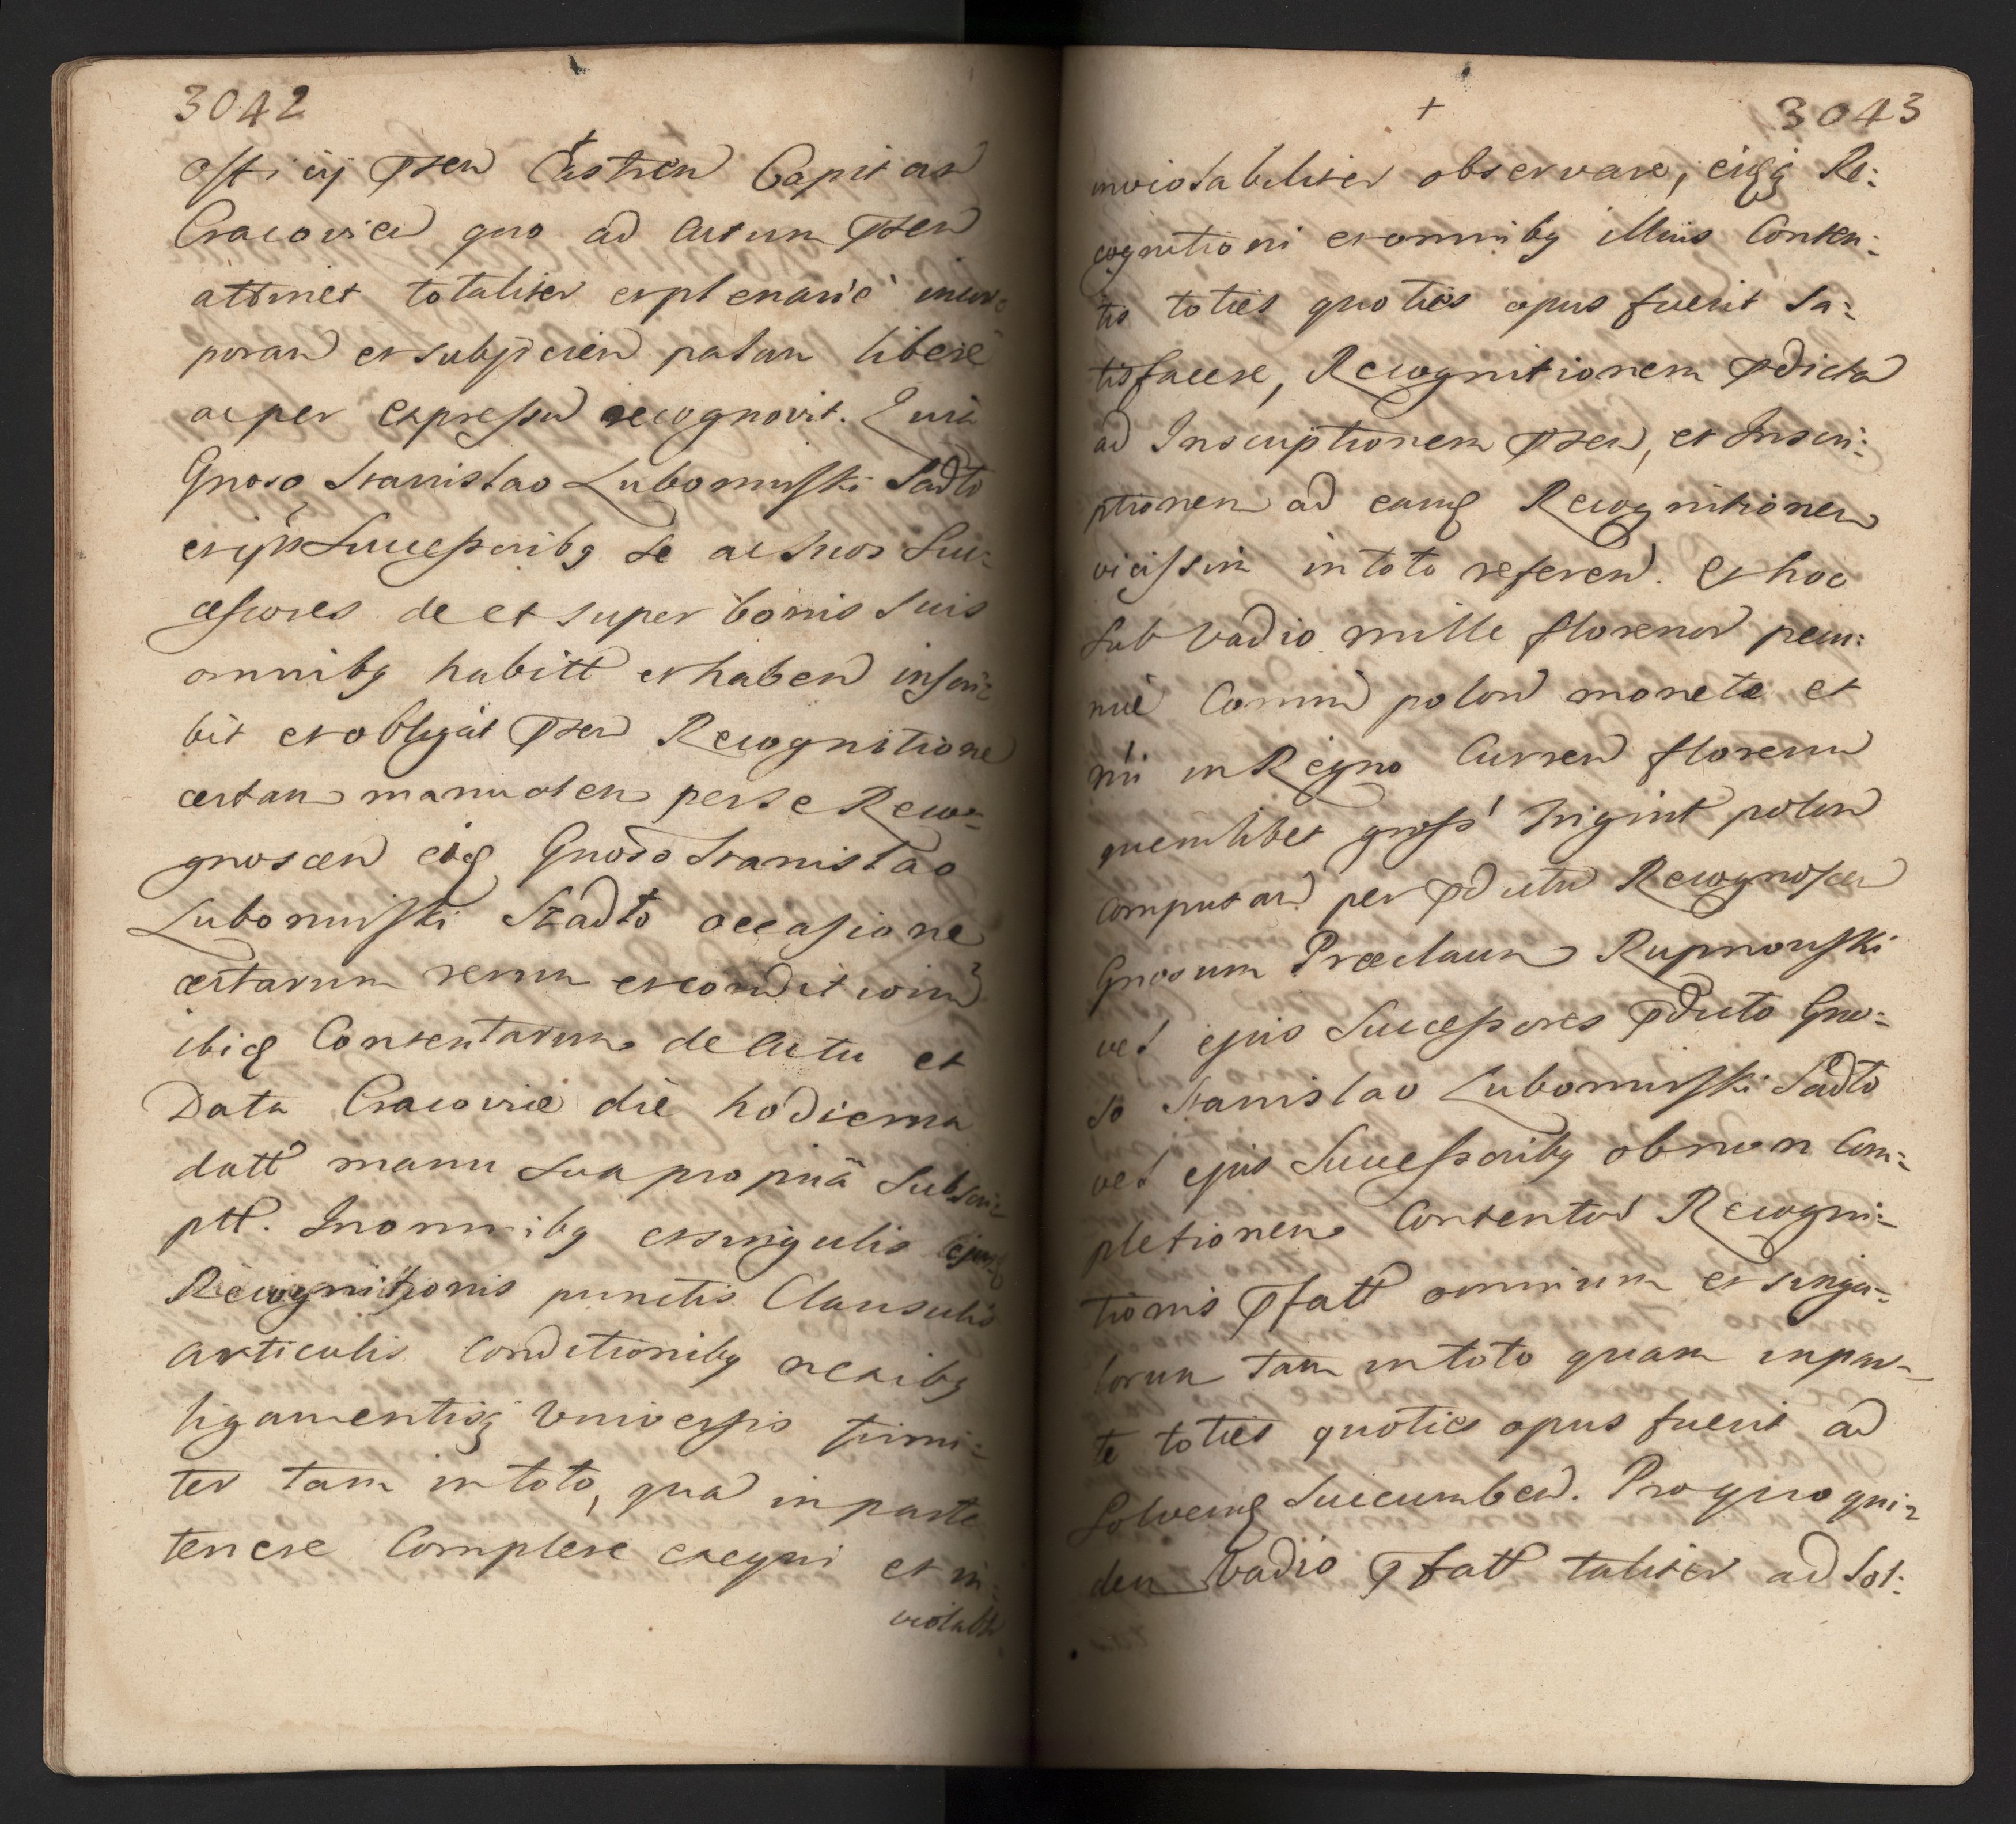 3042
Officij pñen Castren Capitan
Cracovien quo ad Actum pñen
attinet totaliter et plenarie incor=
poran et subjicien palam libere
ac per expressu recognovit. Quia
Gnoso Stanislao Lubomirski Sadto
et ejus Successoribg se ac suos Suc=
cessores de et super bonis suis
omnibg habitt et haben inscri=
bit et obligat pñen Recognitione
certam manualem per se Reco=
gnoscen eidq Gnoso Stanislao
Lubomirski Sadto occasione
certarum rerum et conditionũ
ibiq Contentarum de Actu et
Data Cracoviæ die hodierna
datt manu sua propria Subscri=
ptt. In omnibg et singulis ejusq
Recognitionis punctis Clausulis
articulis conditionibg nexibg
ligamentisq Universis firmi=
ter tam in toto, qua in parte
tenere Complere exequi et in=
violabili
+ 3043
inviolabiliter observare, eiqq Re=
cognitioni et omnibg illius Conten=
tis toties quoties opus fuerit Sa=
tisfacere, Recognitionem pdicta
ad Inscriptionem pñen, et Inscri=
ptionem ad eamq Recognitionem
vicissim in toto referen. et hoc
Sub Vadio mille florenor pecu=
niæ Commũ polon monetæ et
nũi in Regno Curren florenũ
quemlibet gross Trigint polon
computan per pdictu Recognoscen
Gnosum Præclaum Rupniowski
vel ejus Successores pdicto Gno=
so Stanislao Lubomirski Sadto
vel ejus Successoribg ob non Com=
pletionem Contentor Recogni=
tionis pfatt omnium et singu=
lorum tam in toto quam in par=
te toties quoties opus fuerit ad
Solvenq Succumben. Pro quo qui=
dem Vadio pfatt taliter ad Sol=